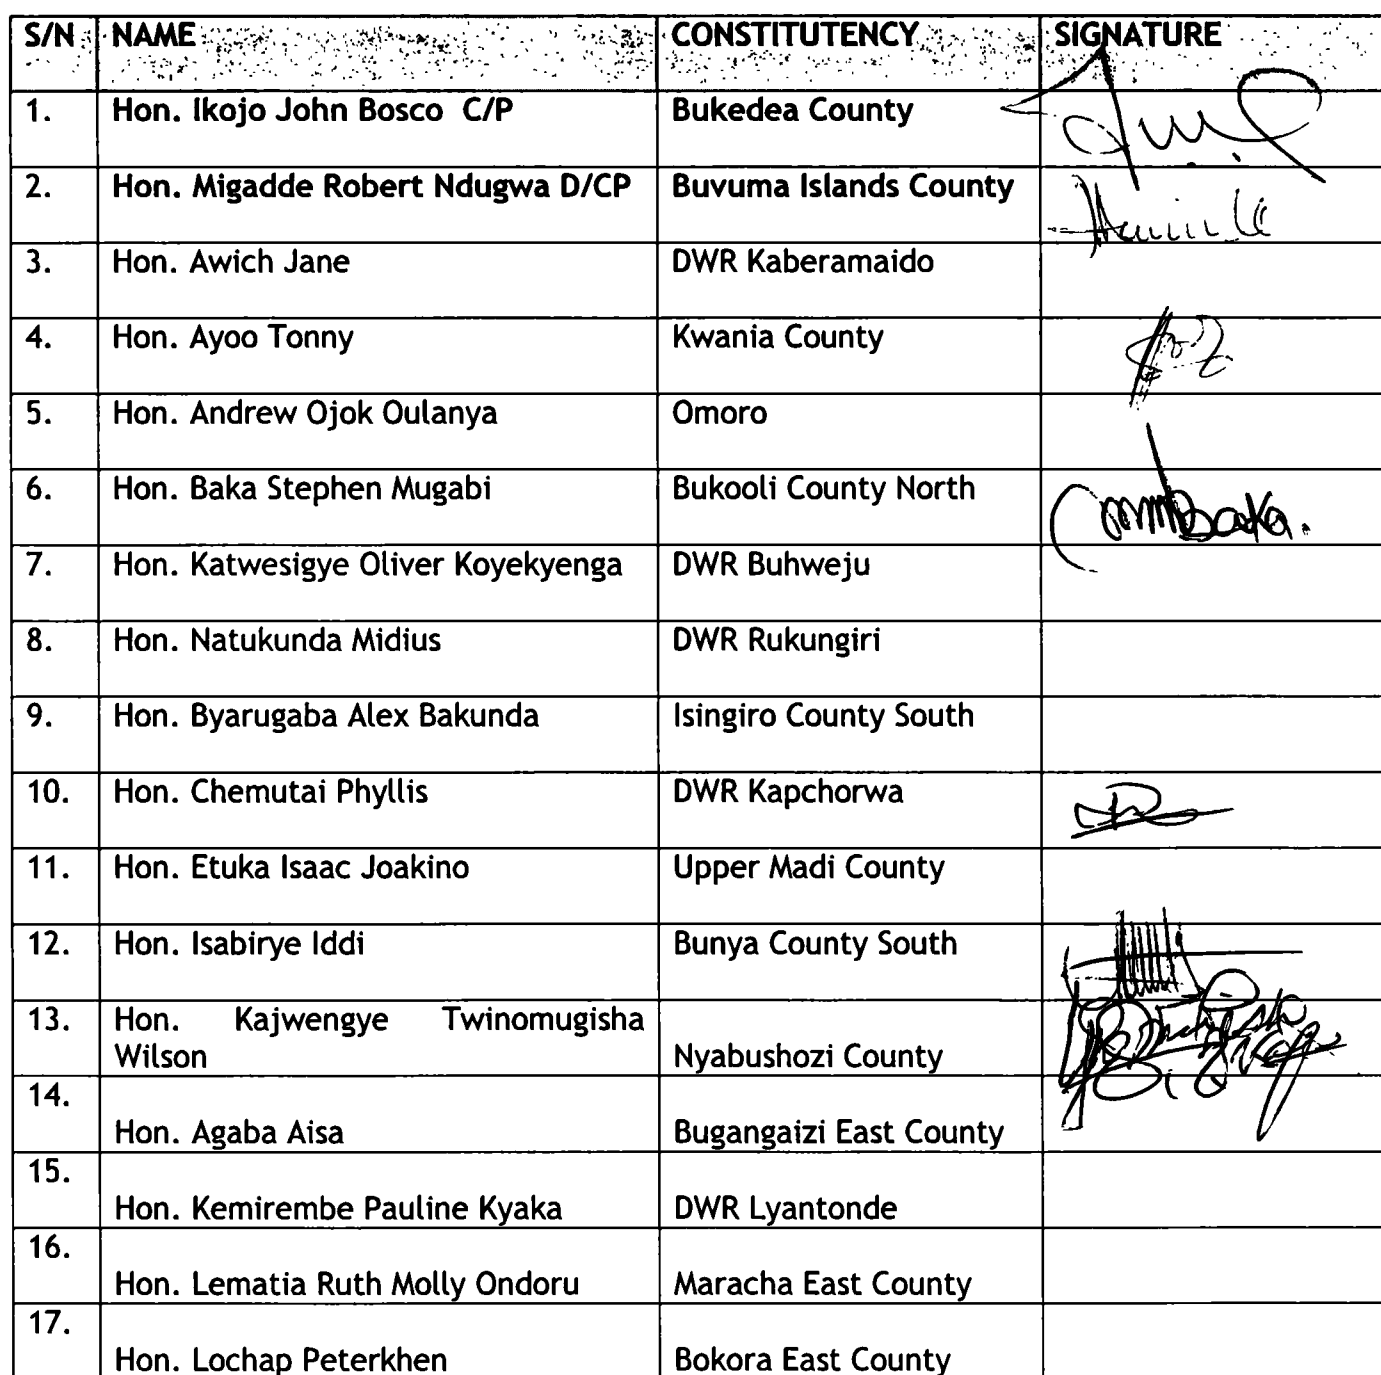 S/N NAME CONSTITUTENCY SIGNATURE
1. Hon. Ikojo John Bosco C/P Bukedea County
2. Hon. Migadde Robert Ndugwa D/CP Buvuma Islands County
3. Hon. Awich Jane DWR Kaberamaido
4. Hon. Ayoo Tonny Kwania County
5. Hon. Andrew Ojok Oulanya Omoro
6. Hon. Baka Stephen Mugabi Bukooli County North
7. Hon. Katwesigye Oliver Koyekyenga DWR Buhweju
8. Hon. Natukunda Midius DWR Rukungiri
9. Hon. Byarugaba Alex Bakunda Isingiro County South
10. Hon. Chemutai Phyllis DWR Kapchorwa
11. Hon. Etuka Isaac Joakino Upper Madi County
12. Hon. Isabirye Iddi Bunya County South
13. Hon. Kajwengye Twinomugisha
Wilson Nyabushozi County
14.
Hon. Agaba Aisa Bugangaizi East County
15.
Hon. Kemirembe Pauline Kyaka DWR Lyantonde
16.
Hon. Lematia Ruth Molly Ondoru Maracha East County
17.
Hon. Lochap Peterkhen Bokora East County